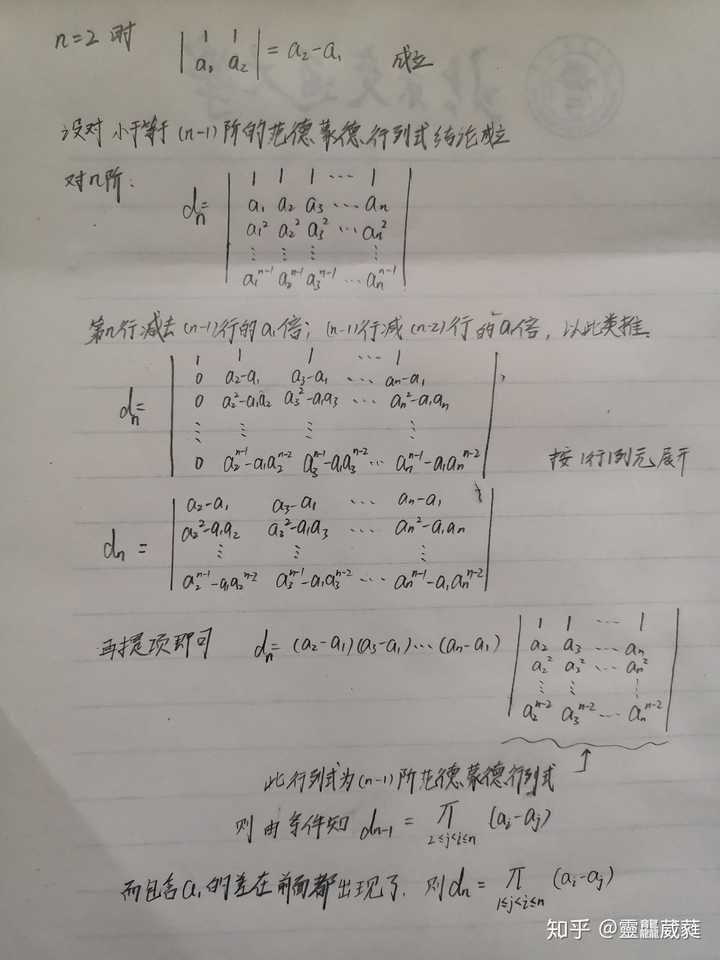 n=2 时 | 1 1 ; a₁ a₂ | = a₂-a₁ 成立
设对小于等于(n-1)阶的范德蒙德行列式结论成立
对n阶:
dₙ= | 1 1 1 ⋯ 1 |
| a₁ a₂ a₃ ⋯ aₙ |
| a₁² a₂² a₃² ⋯ aₙ² |
| ⋮ ⋮ ⋮ ⋮ |
| a₁ⁿ⁻¹ a₂ⁿ⁻¹ a₃ⁿ⁻¹ ⋯ aₙⁿ⁻¹ |
第n行减去(n-1)行的a₁倍; (n-1)行减(n-2)行的a₁倍, 以此类推.
dₙ= | 1 1 1 ⋯ 1 |
| 0 a₂-a₁ a₃-a₁ ⋯ aₙ-a₁ |
| 0 a₂²-a₁a₂ a₃²-a₁a₃ ⋯ aₙ²-a₁aₙ |
| ⋮ ⋮ ⋮ ⋮ |
| 0 a₂ⁿ⁻¹-a₁a₂ⁿ⁻² a₃ⁿ⁻¹-a₁a₃ⁿ⁻² ⋯ aₙⁿ⁻¹-a₁aₙⁿ⁻² |
按1行1列元展开
dₙ = | a₂-a₁ a₃-a₁ ⋯ aₙ-a₁ |
| a₂²-a₁a₂ a₂²-a₁a₃ ⋯ aₙ²-a₁aₙ |
| ⋮ ⋮ ⋮ |
| a₂ⁿ⁻¹-a₁a₂ⁿ⁻² a₃ⁿ⁻¹-a₁a₃ⁿ⁻² ⋯ aₙⁿ⁻¹-a₁aₙⁿ⁻² |
再提项即可 dₙ= (a₂-a₁)(a₃-a₁)⋯(aₙ-a₁) | 1 1 ⋯ 1 |
| a₂ a₃ ⋯ aₙ |
| a₂² a₃² ⋯ aₙ² |
| ⋮ ⋮ ⋮ |
| a₂ⁿ⁻² a₃ⁿ⁻² ⋯ aₙⁿ⁻² |
此行列式为(n-1)阶范德蒙德行列式
则由条件知 dₙ₋₁ = ∏ (aᵢ-aⱼ)
2≤j<i≤n
而包含a₁的差在前面都出现了. 则dₙ = ∏ (aᵢ-aⱼ)
1≤j<i≤n
知乎 @靈龘葳蕤